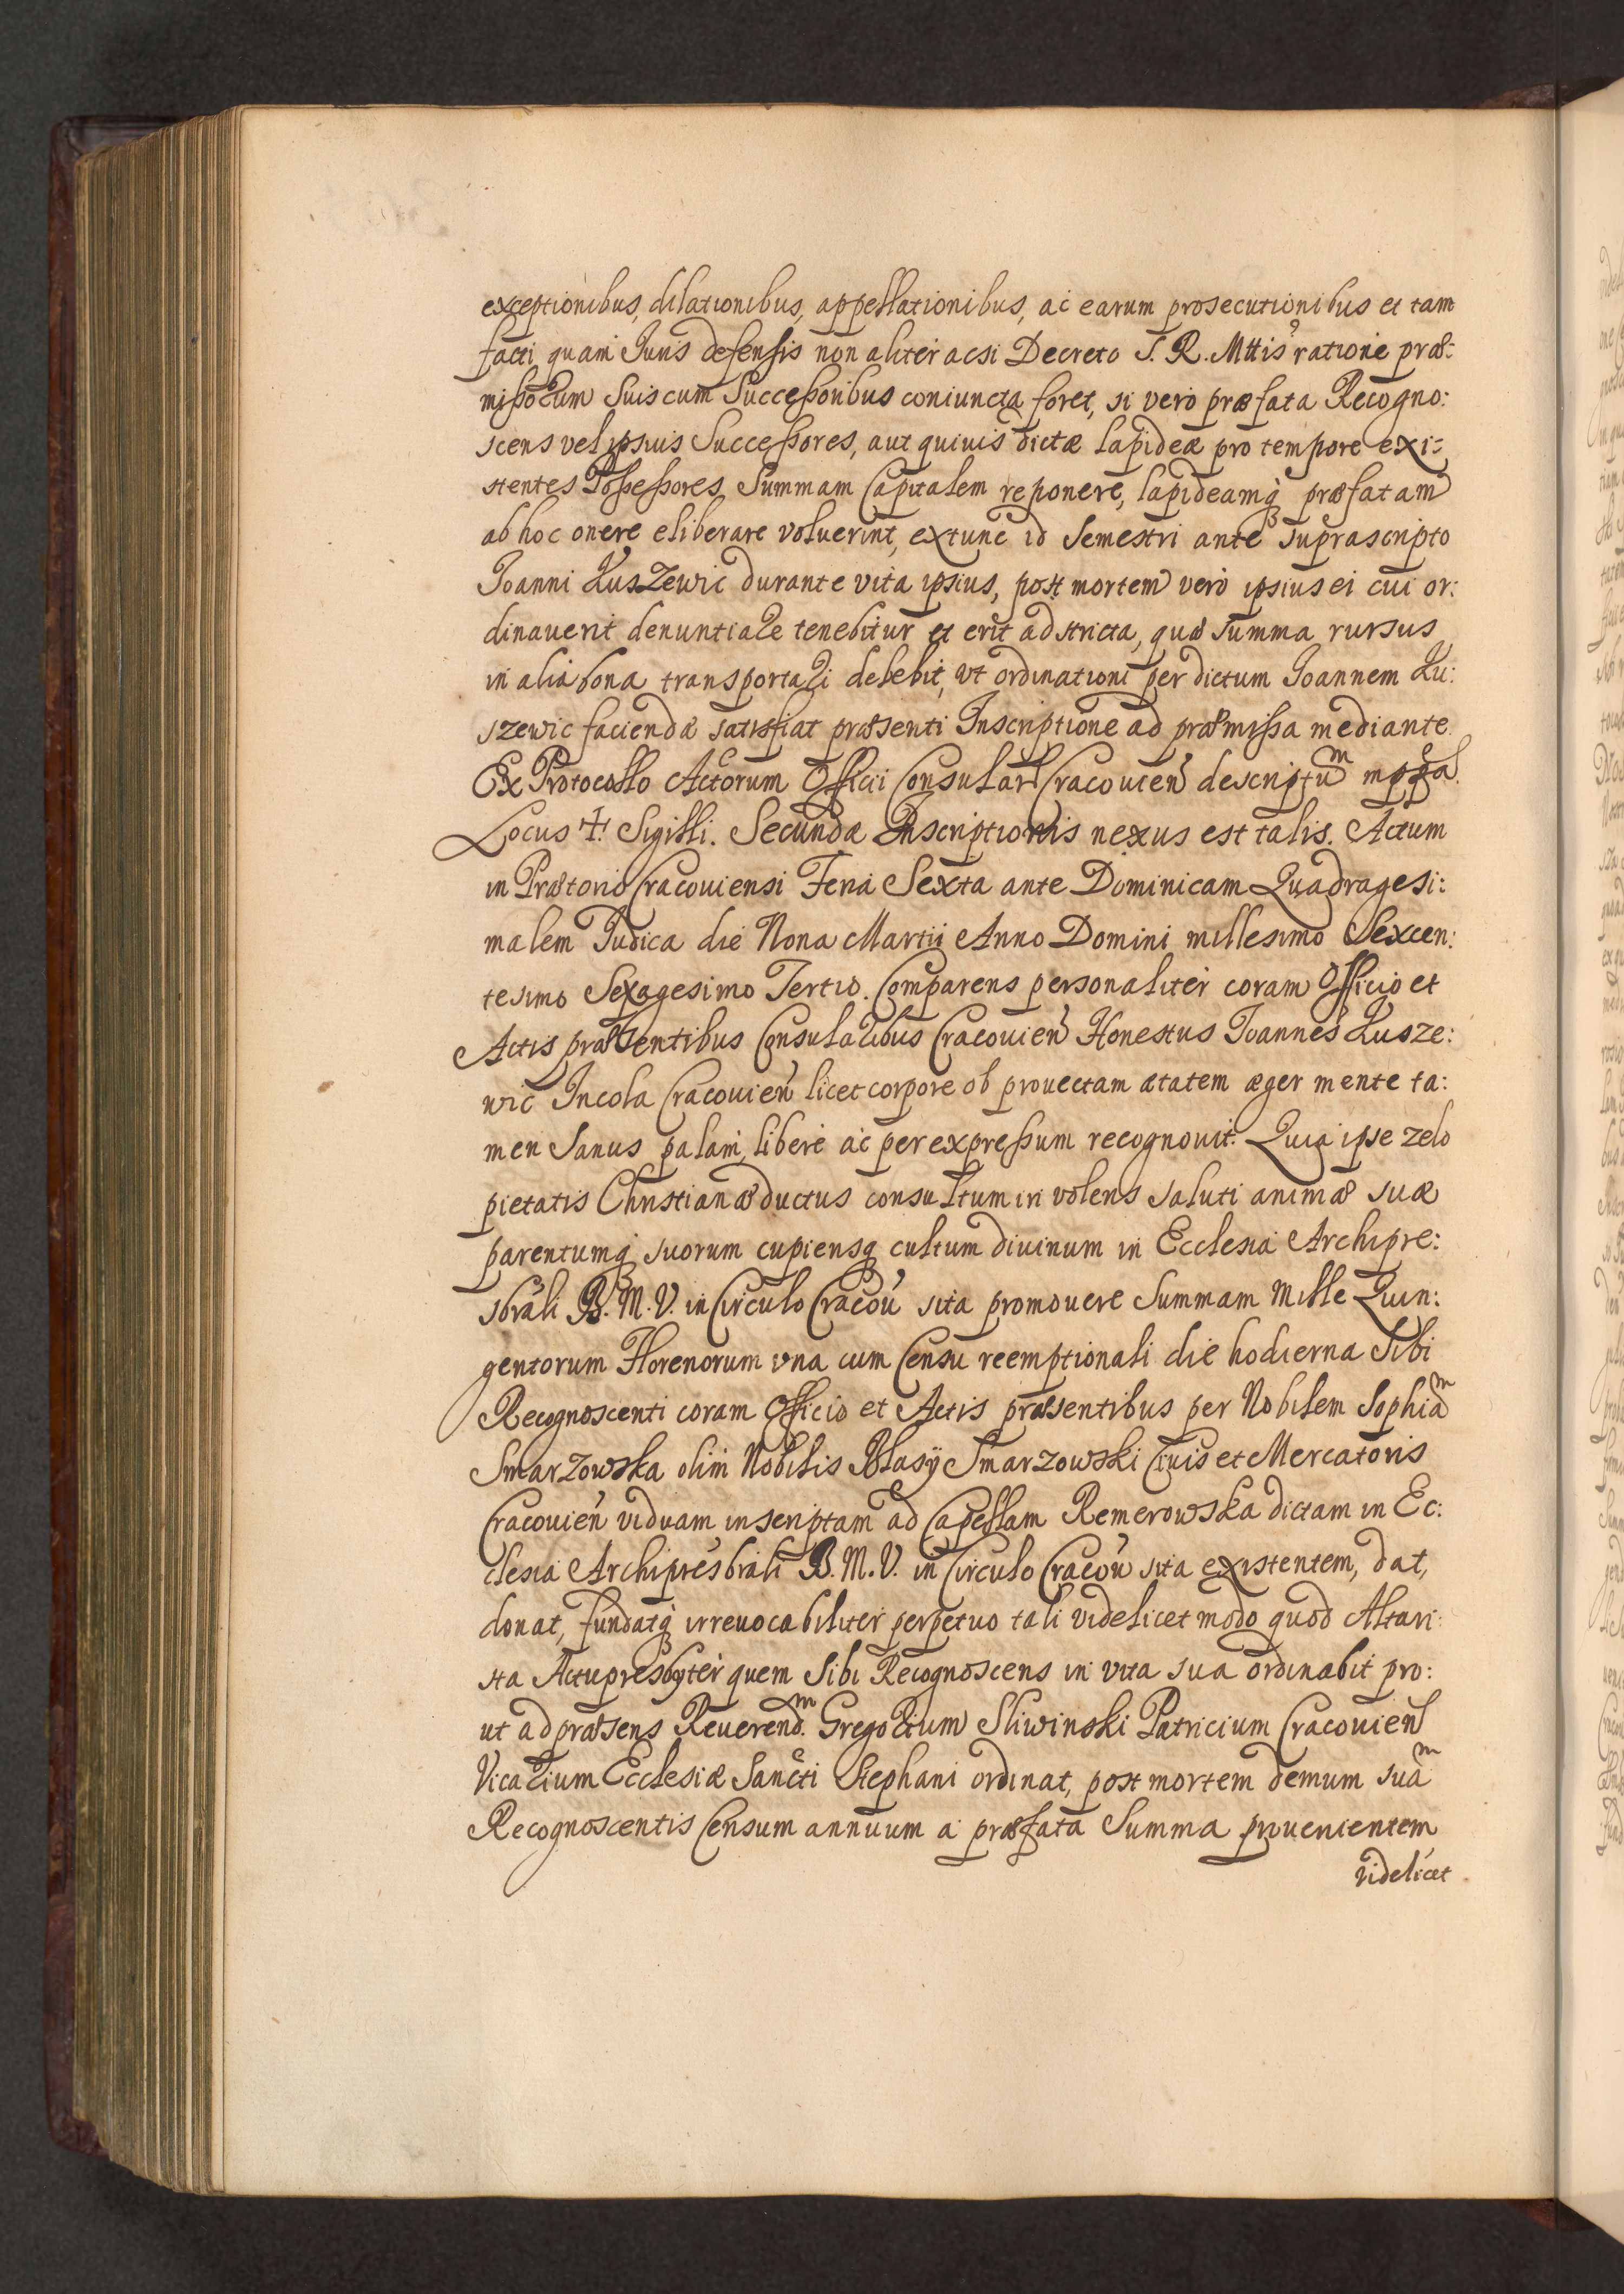 exceptionibus, dilationibus, appellationibus, ac earum prosecutionibus et tam
facti quam Iuris defensis non aliter acsi Decreto S. R. Mttis ratione præ:
missorum suis cum Successoribus coniuncta foret, si vero præfata Recogno:
scens vel ipsius Successores, aut quiuis dictæ lapideæ pro tempore exi:
stentes Possessores Summam Capitalem reponere, lapideamq præfatam
ab hoc onere eliberare voluerint, extunc id Semestri ante suprascripto
Ioanni Kuszewic durante vita ipsius, post mortem vero ipsius ei cui or:
dinauerit denuntiare tenebitur et erit adstricta, quæ summa rursus
in alia bona transportari debebit, vt ordinationi per dictum Ioannem Ku:
szewic faciendæ satisfiat præsenti Inscriptione ad præmissa mediante.
Ex Protocollo Actorum Officii Consularis Cracouien descriptum mppa.
Locus ☩ Sigilli. Secundæ Inscriptionis nexus est talis. Actum
in Prætorio Cracouiensi Feria Sexta ante Dominicam Quadragesi:
malem Iudica die Nona Martii Anno Domini millesimo Sexcen:
tesimo Sexagesimo Tertio. Comparens personaliter coram Officio et
Actis præsentibus Consularibus Cracouien Honestus Ioannes Kusze:
wic Incola Cracouien licet corpore ob prouectam ætatem æger mente ta:
men sanus palam, libere ac per expressum recognouit. Quia ipse zelo
pietatis Christianæ ductus consultum iri volens saluti animæ suæ
parentumq suorum cupiensq cultum diuinum in Ecclesia Archipre:
sbrali B. M. V. in Circulo Cracou sita promouere Summam Mille Quin:
gentorum Florenorum vna cum Censu reemptionali die hodierna Sibi
Recognoscenti coram Officio et Actis præsentibus per Nobilem Sophiam
Smarzowska olim Nobilis Blasÿ Smarzowski Ciuis et Mercatoris
Cracouien viduam inscriptam ad Capellam Remerowska dictam in Ec:
clesia Archipresbrali B. M. V. in Circulo Cracou sita existentem, dat,
donat, fundatq irreuocabiliter perpetuo tali videlicet modo quod Altari:
sta Actu presbyter quem Sibi Recognoscens in vita sua ordinabit pro:
ut ad præsens Reuerendm. Gregorium Sliwinski Patricium Cracouien
Vicarium Ecclesiæ Sancti Stephani ordinat, post mortem demum suam
Recognoscentis Censum annuum a præfata Summa prouenientem
videlicet